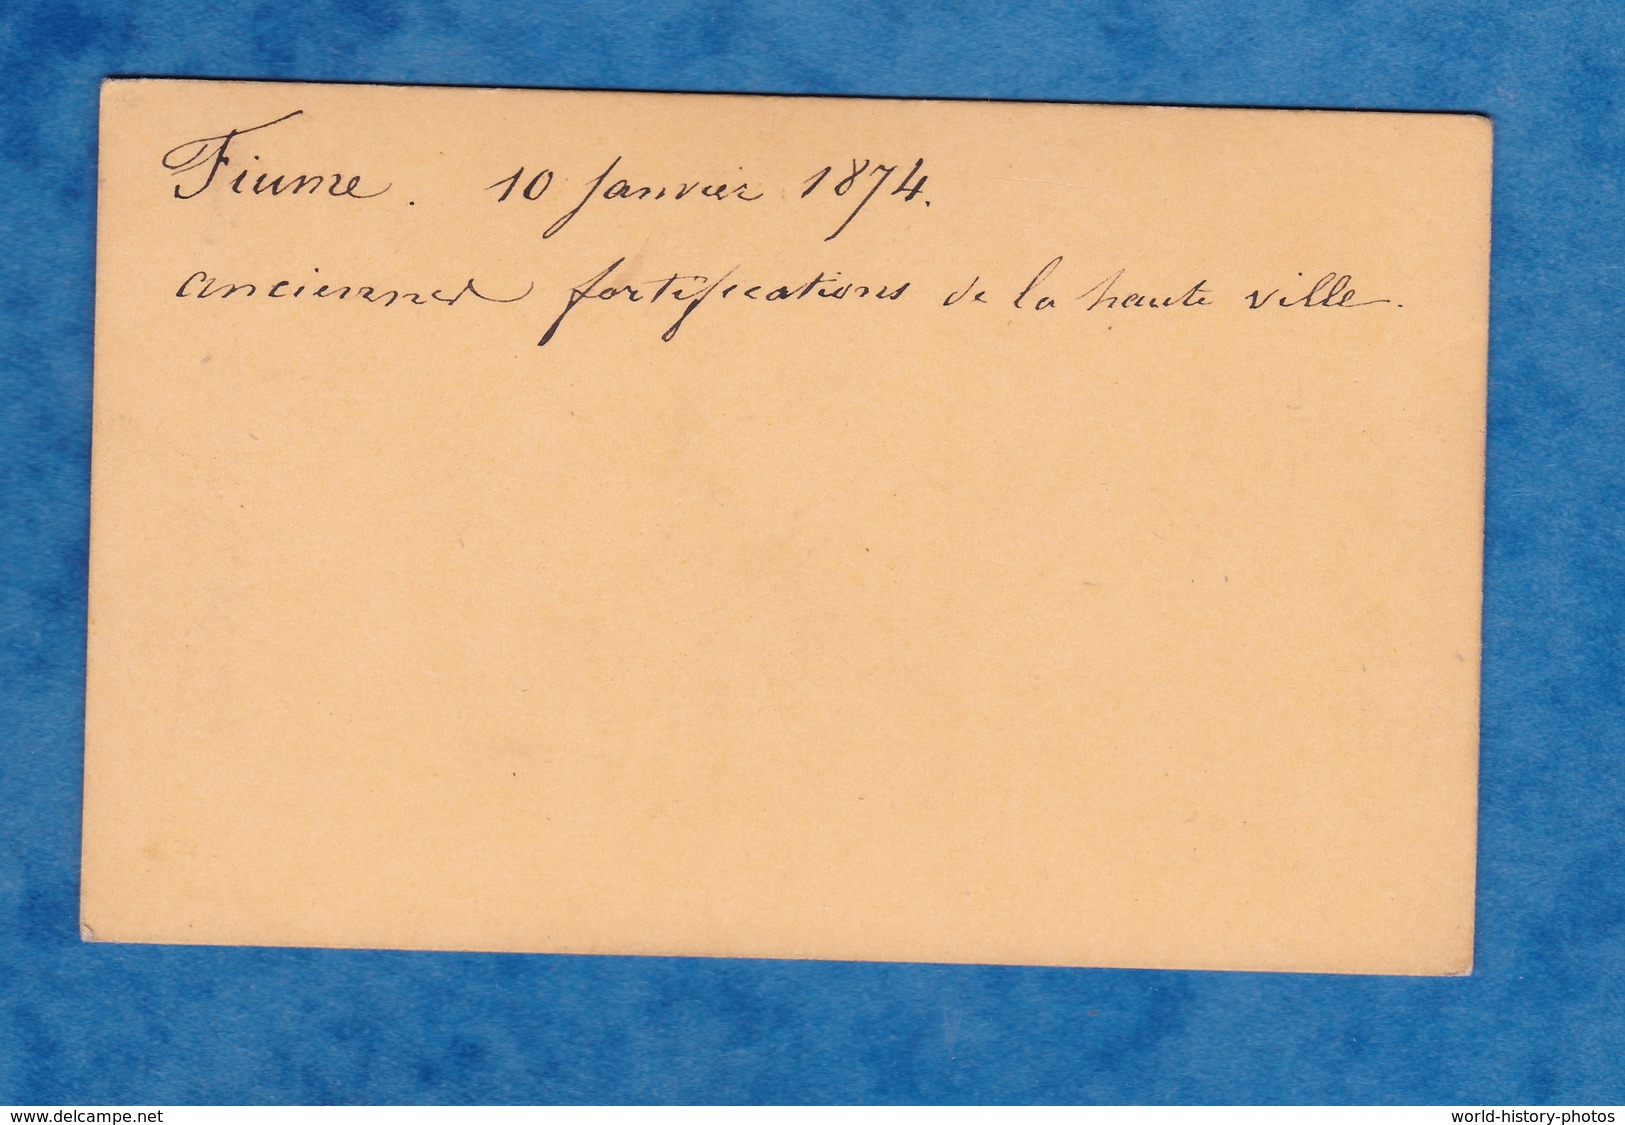 Fiume. 10 Janvier 1874.
anciennes fortifications de la haute ville.
www.delcampe.net
world-history-photos